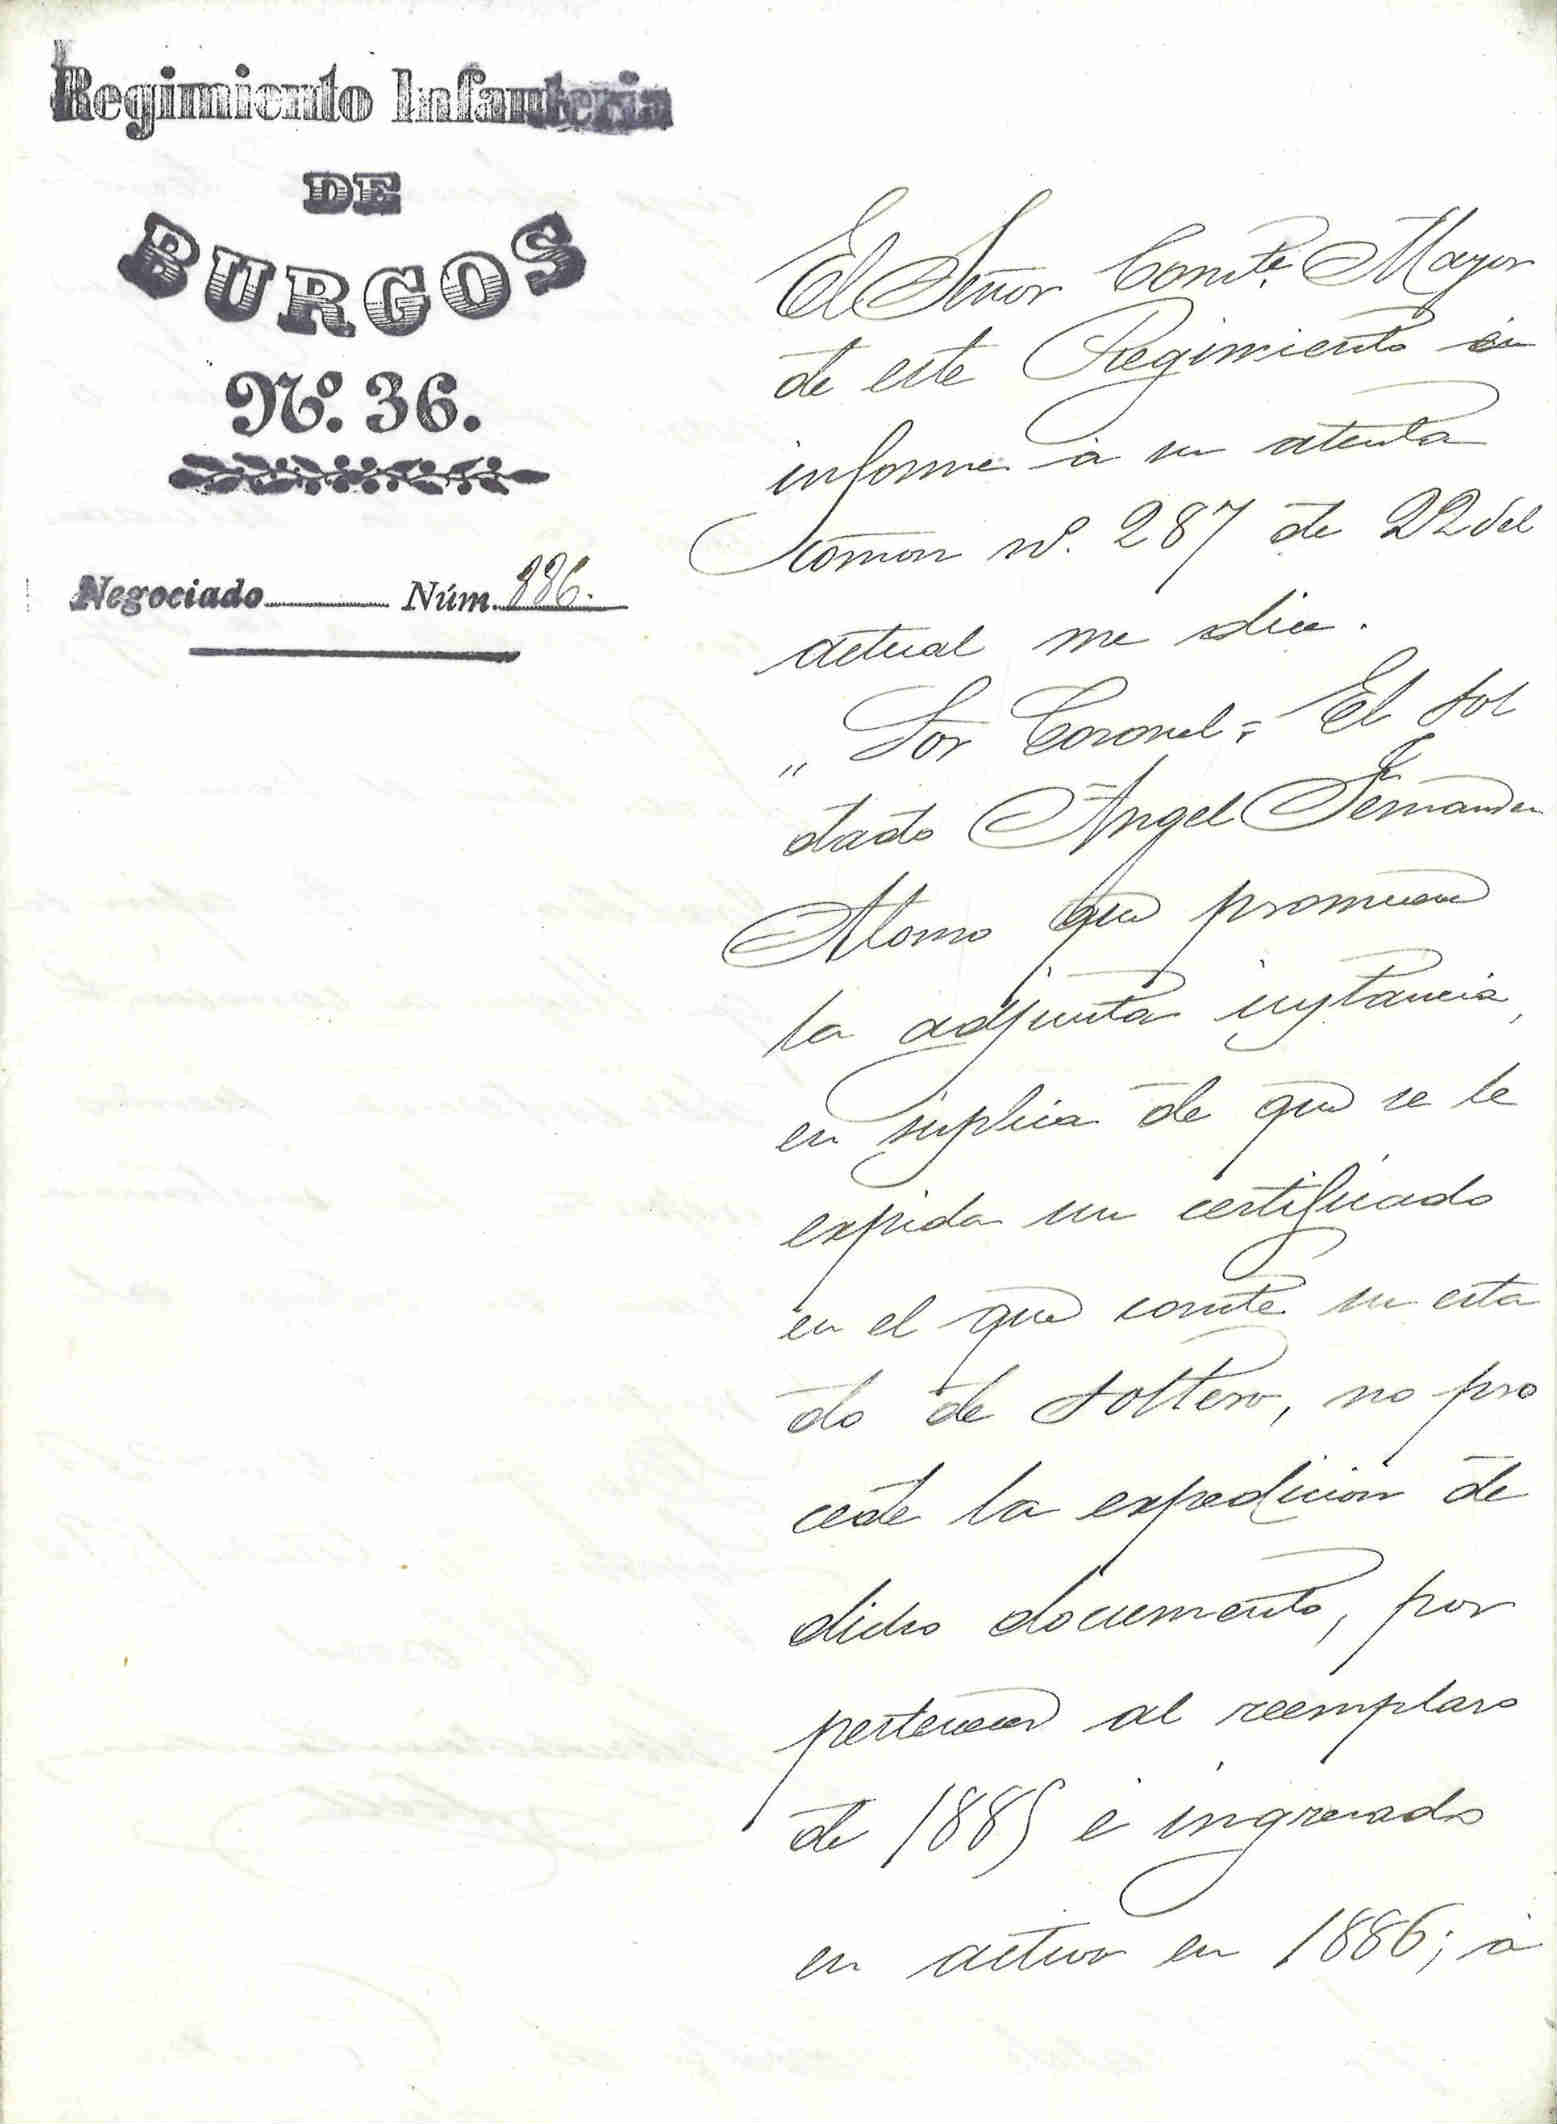 Regimiento Infanteria
DE
BURGOS
Nº. 36.
Negociado Núm. 886.
El Señor Comte. Mayor
de este Regimiento en
informe á su atenta
comon nº. 287 de 22 del
actual me dice.
" Sor Coronel = El Sol
dado Angel Fernandez
Alonso que promueve
la adjunta instancia,
en suplica de que se le
expida un certificado
en el que conste su esta
do de soltero, no pro
cede la expedicion de
dicho documento, por
pertenecer al reemplazo
de 1885 é ingresado
en activo en 1886; á